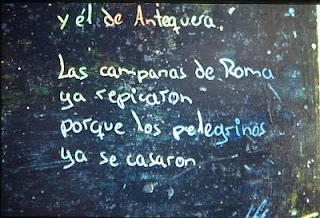 y él de Antequera.
Las campanas de Roma
ya repicaron
porque los pelegrinos
ya se casaron